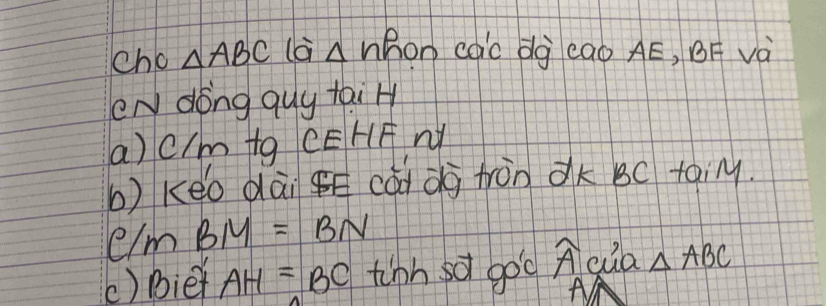 Cho △ABC là △ nhọn các đg cao AE, BF và
CN đồng quy tại H
a) C/m tg CEHF nt
b) Kéo dài FE cắt đg tròn đk BC tại M.
C/m BM = BN
c) Biết AH = BC tính số góc Â của △ ABC
A